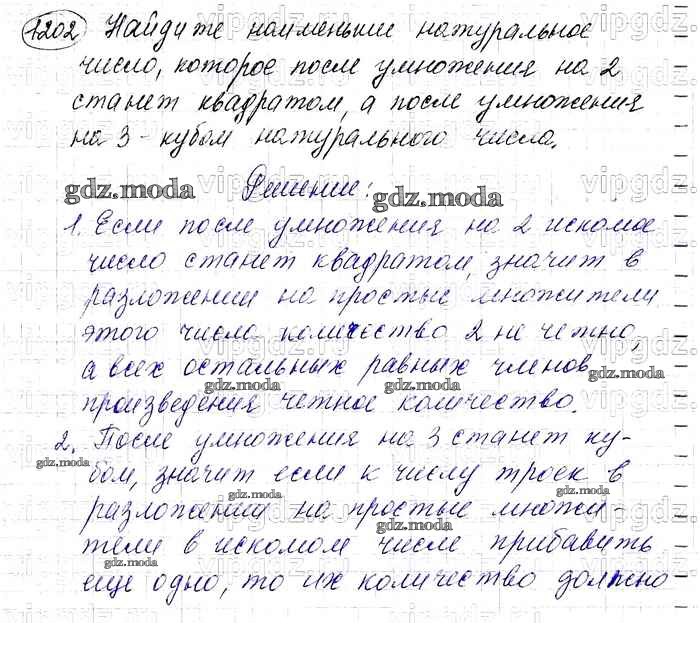 1202 Найдите наименьше натуральное
число, которое после умножения на 2
станет квадратом, а после умножения
на 3 - кубом натурального числа.
gdz.moda Решение: gdz.moda
1. Если после умножения на 2 искомое
число станет квадратом, значит в
разложении на простые множители
этого числа количество 2 не четно,
а всех остальных равных членов gdz.moda
gdz.moda gdz.moda
произведения четное количество.
2. После умножения на 3 станет ку-
gdz.moda
бом, значит если к числу троек в
gdz.moda gdz.moda
разложении на простые множи-
gdz.moda
тели в искомом числе прибавить
gdz.moda
еще одно, то их количество должно
gdz.moda